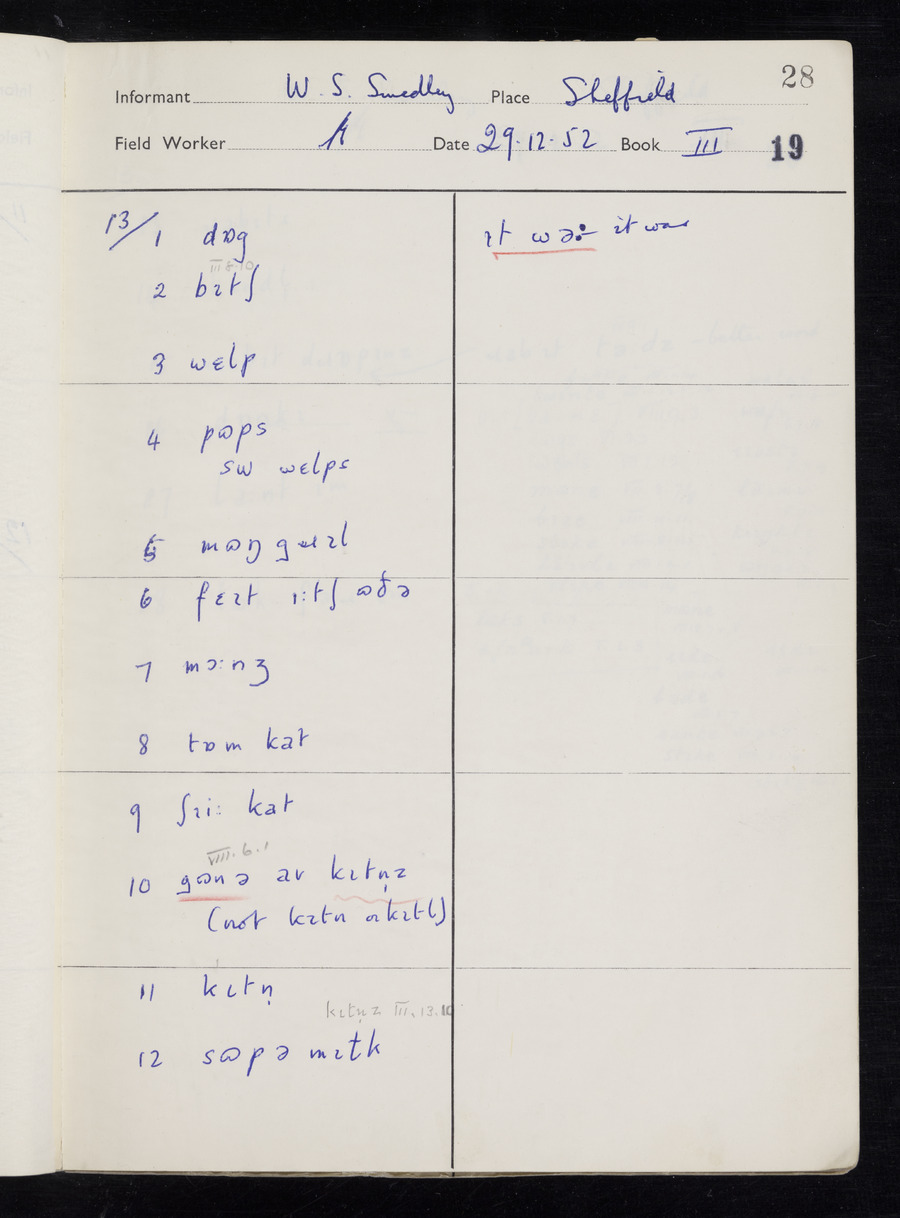 28
Informant W. S. Smedley Place Sheffield
Field Worker Date 29.12.52 Book III 19
13/1 dɒg
ɪt wə: it was
2 bɪtʃ
3 wɛlp
4 pɷps
sw wɛlps
5 mɷŋgɹɪl
6 fɛɪt ɪ:tʃ ɷðə
7 mɔ:nʒ
8 tɒm kat
9 ʃɪi: kat
VIII.6.1
10 gɷnə av kɪtn̩z
(not kɪtn a kɪtl)
11 kɪtn̩
kɪtn̩z III.13.10
12 sɷpə mɪɫk